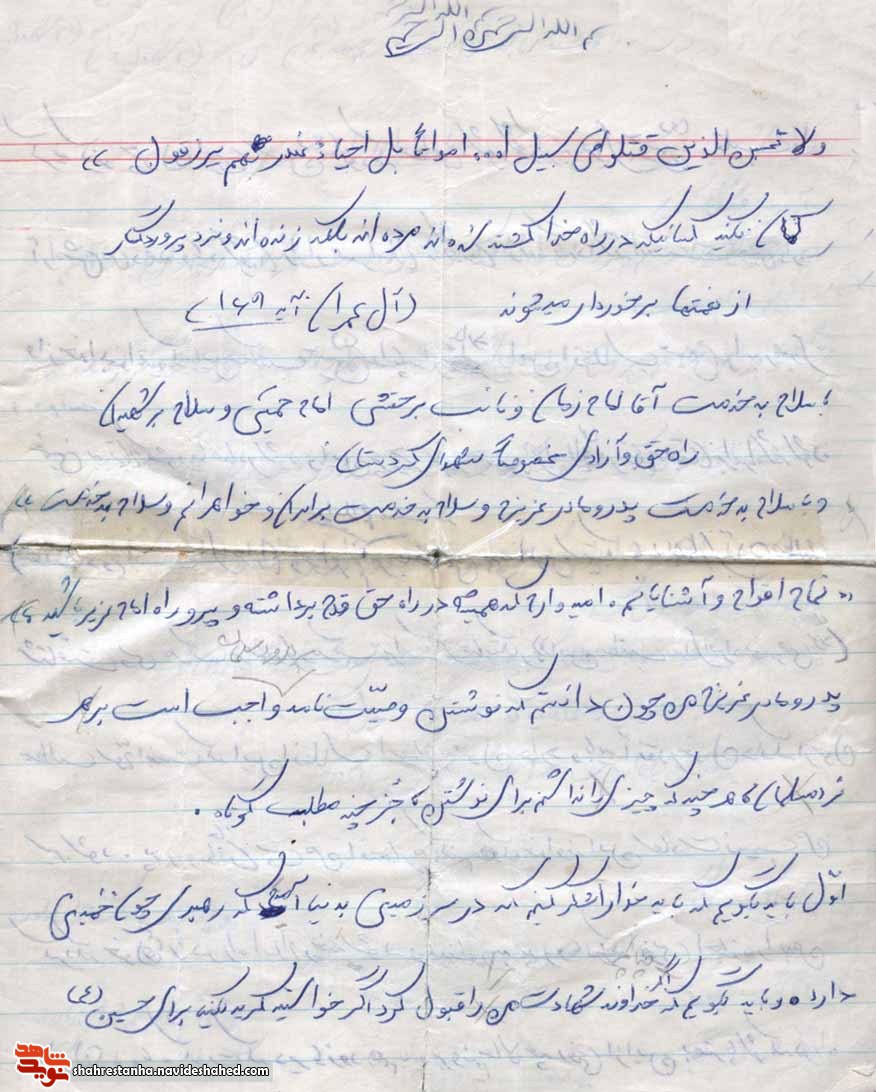 بسم الله الرحمن الرحیم
ولا تحسبن الذین قتلوا فی سبیل ا... امواتاً بل احیاء عند ربهم یرزقون
گمان نکنید کسانیکه در راه خدا کشته شده اند مرده اند بلکه زنده اند و نزد پروردگار
از نعمتها برخوردار میشوند (آل عمران آیه ۱۶۹)
با سلام به خدمت آقا امام زمان و نائب برحقش امام خمینی و سلام بر شهیدان
راه حق و آزادی مخصوصاً شهدای کردستان
و با سلام به خدمت پدر و مادر عزیزم و سلام به خدمت برادران و خواهرانم و سلام به خدمت
تمام اقوام و آشنایانم. امیدوارم که همیشه در راه حق قدم برداشته و پیرو راه امام عزیز باشید
پدر و مادر عزیزم من چون دانستم که نوشتن وصیّت نامه واجب است بر هر
فرد مسلمان هر چند که چیزی را نداشتم برای نوشتن جُز چند مطلب کوتاه.
اوّل باید بگویم که باید خدا را شکر کنیم که در سرزمینی بدنیا آمدیم که رهبری چون خمینی
دارد و باید بگویم که اگر خداوند شهادت من را قبول کرد اگر خواستید گریه بکنید برای حسین (ع)
نوید شاهد
shahrestanha.navideshahed.com